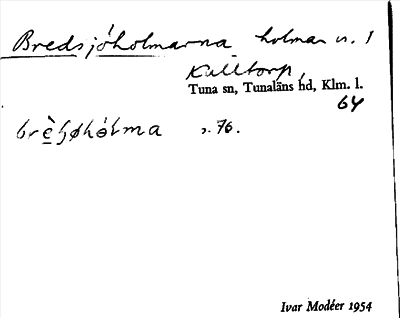 Bredsjöholmarna holmar v. 1
Kulltorp,
Tuna sn, Tunaläns hd, Klm. l.
64
brèʃøhólma s. 76.
Ivar Modéer 1954